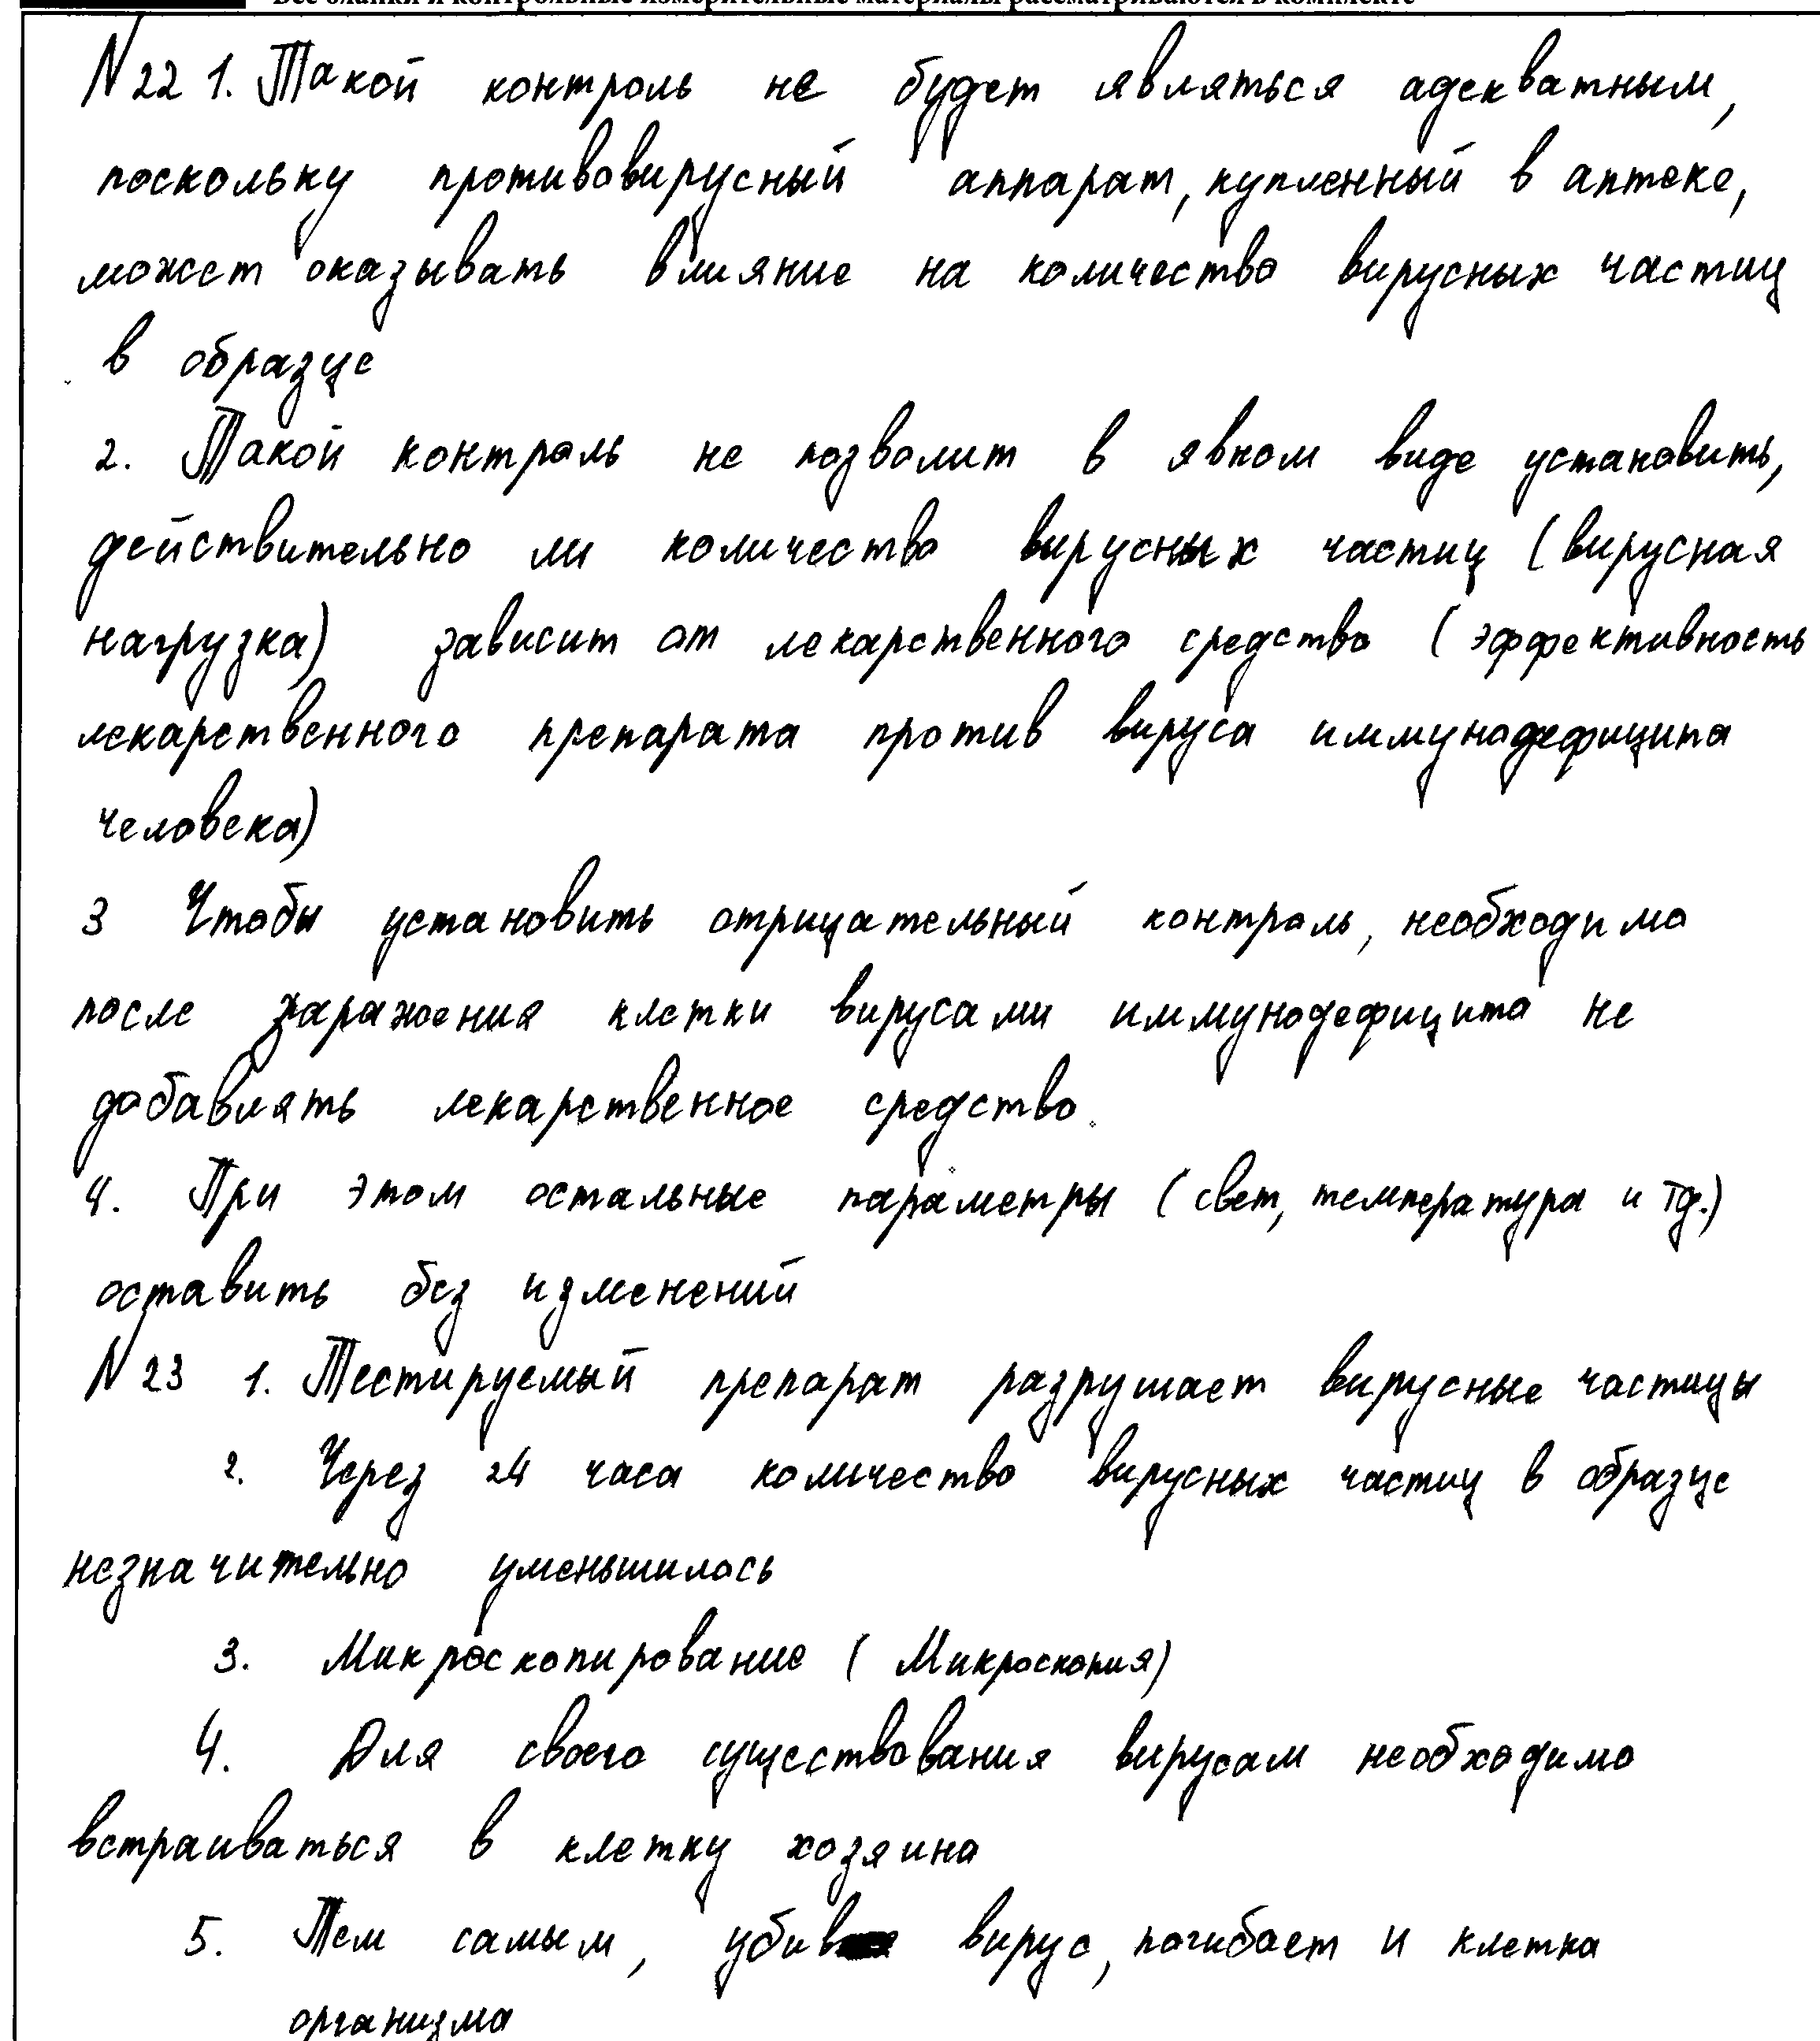 Все бланки и контрольные измерительные материалы рассматриваются в комплекте
N 22 1. Такой контроль не будет являться адекватным,
поскольку противовирусный аппарат, купленный в аптеке,
может оказывать влияние на количество вирусных частиц
в образце
2. Такой контроль не позволит в явном виде установить,
действительно ли количество вирусных частиц (вирусная
нагрузка) зависит от лекарственного средства (эффективность
лекарственного препарата против вируса иммунодефицита
человека)
3 Чтобы установить отрицательный контроль, необходимо
после заражения клетки вирусами иммунодефицита не
добавлять лекарственное средство.
4. При этом остальные параметры (свет, температура и тд.)
оставить без изменений
N 23 1. Тестируемый препарат разрушает вирусные частицы
2. Через 24 часа количество вирусных частиц в образце
незначительно уменьшилось
3. Микроскопирование (Микроскопия)
4. Для своего существования вирусам необходимо
встраиваться в клетку хозяина
5. Тем самым, убив вирус, погибает и клетка
организма